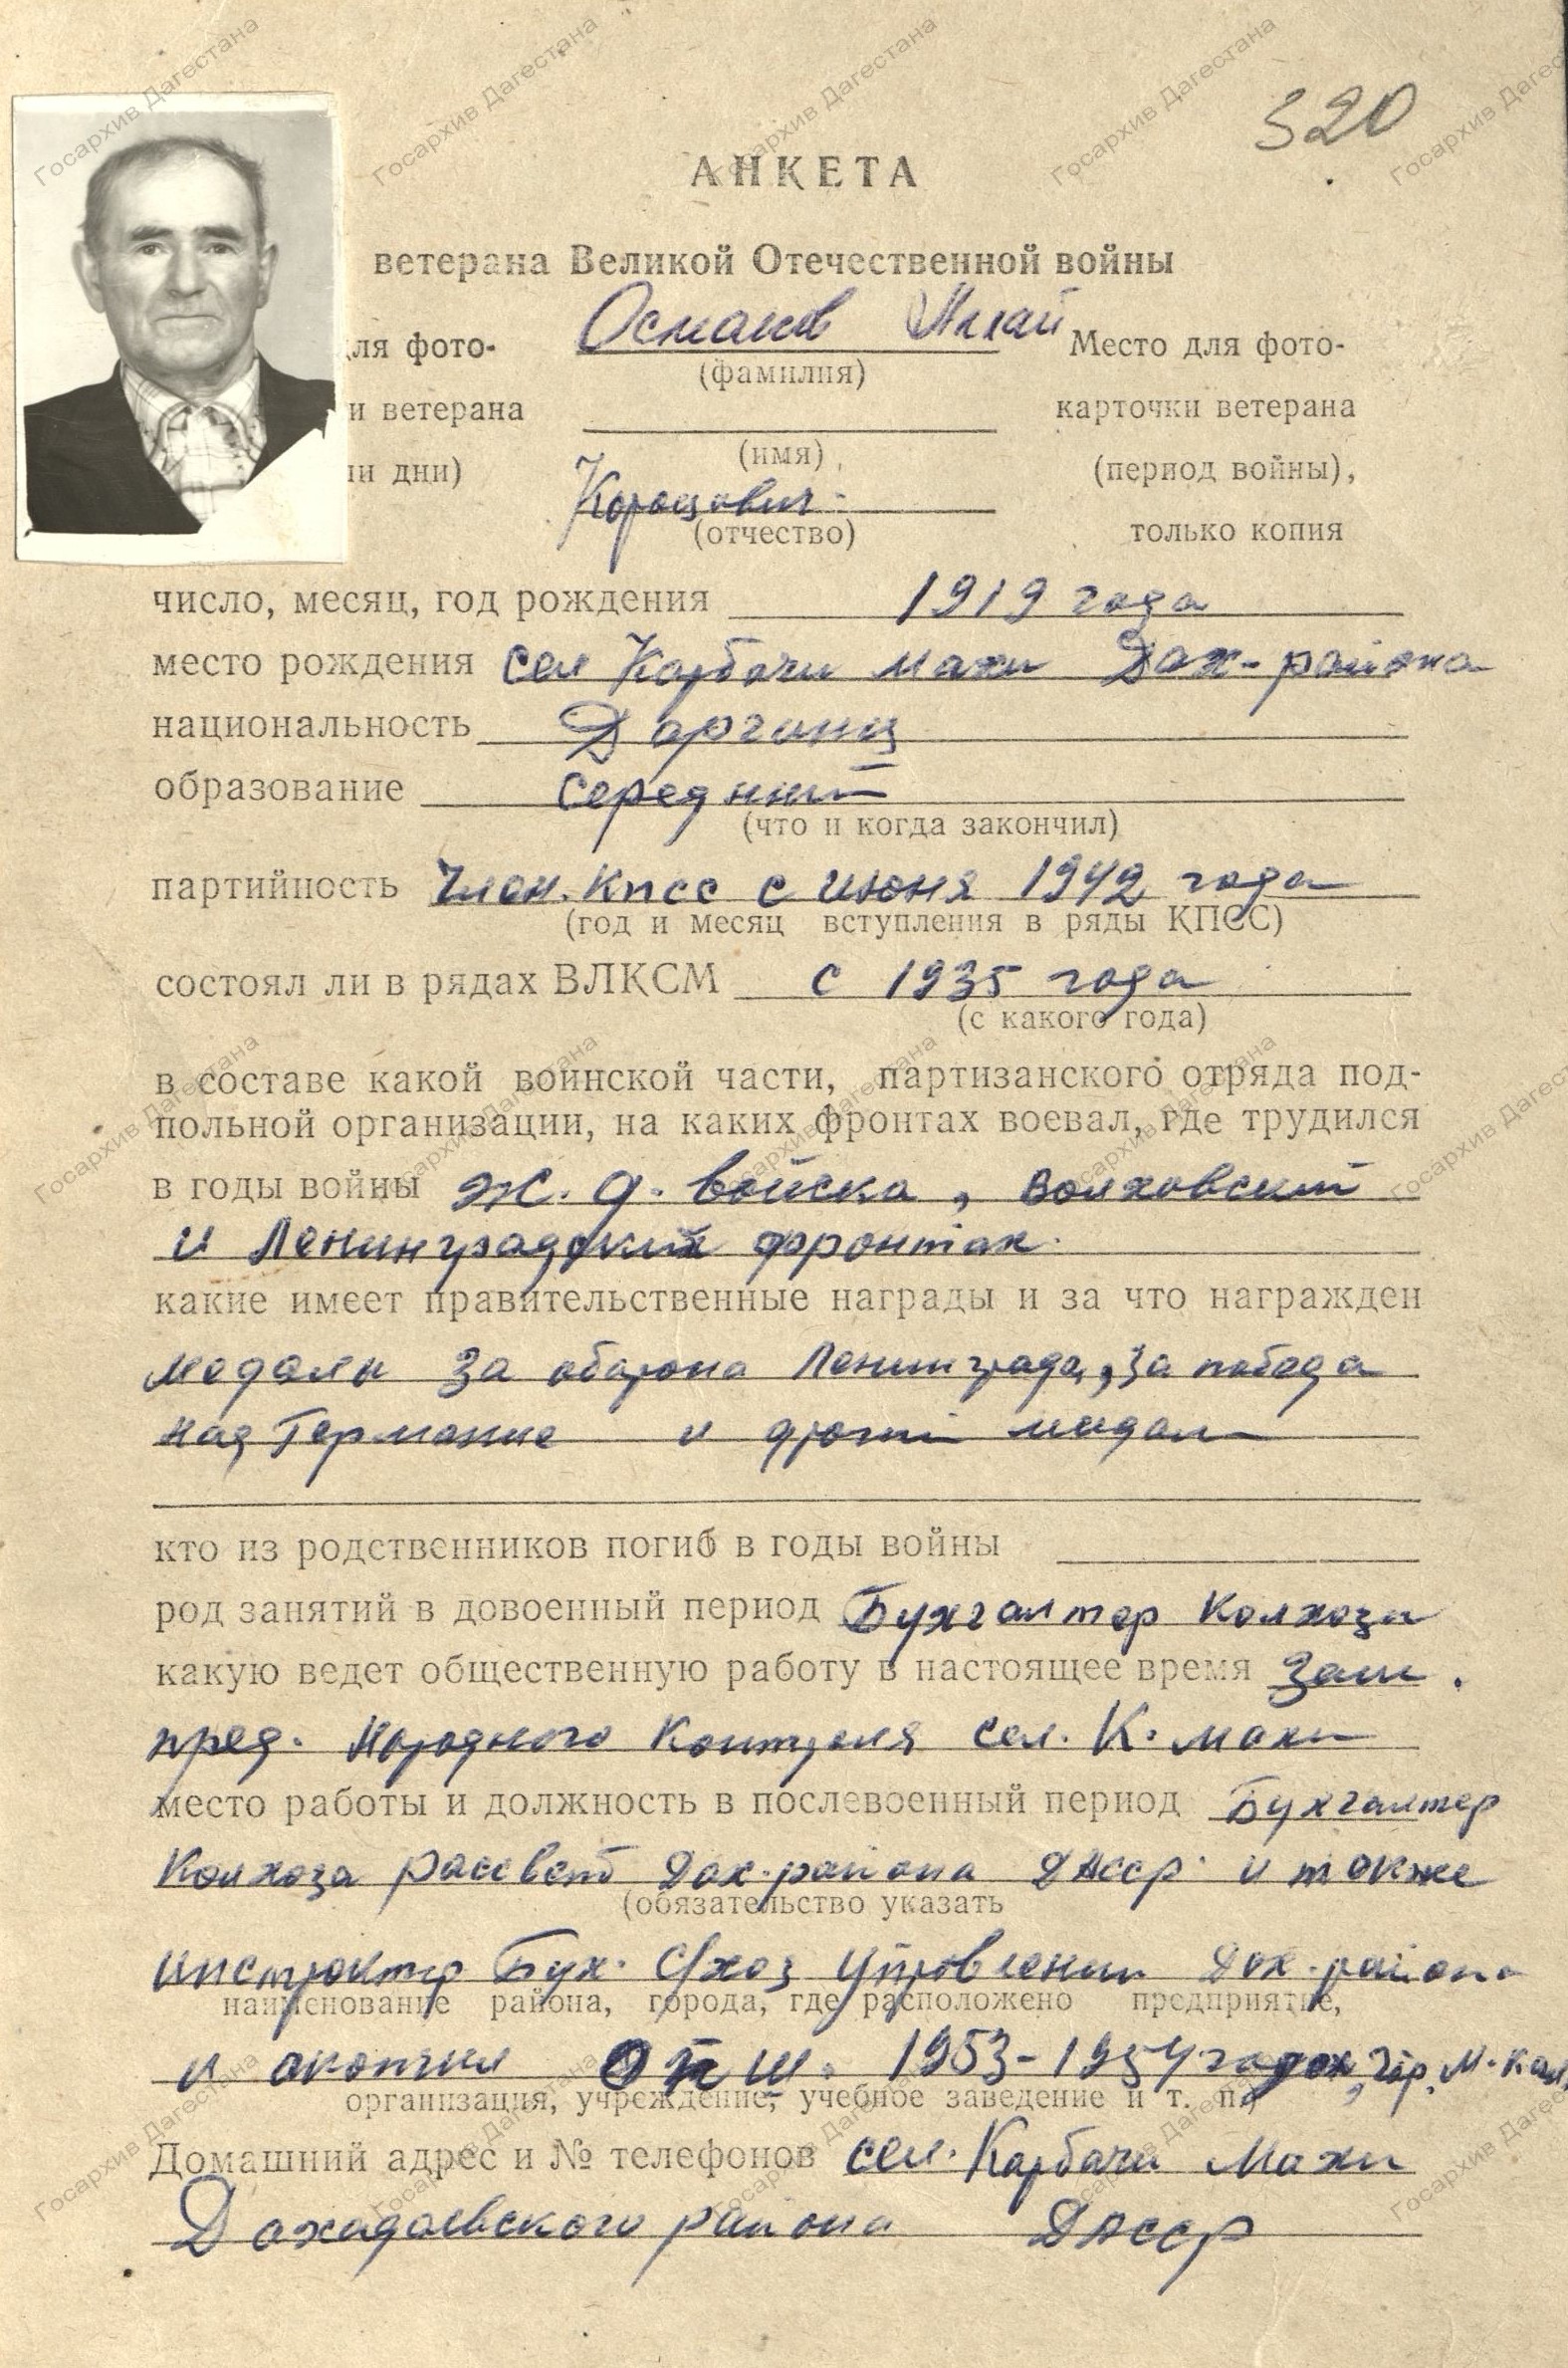 320
АНКЕТА
ветерана Великой Отечественной войны
Османов
для фото- (фамилия) Место для фото-
и ветерана карточки ветерана
ши дни) (имя) (период войны),
(отчество) только копия
число, месяц, год рождения 1919 года
место рождения сел Карбачи махи Дах-района
национальность Даргинц
образование середний
(что и когда закончил)
партийность Член. КПСС с июня 1942 года
(год и месяц вступления в ряды КПСС)
состоял ли в рядах ВЛКСМ с 1935 года
(с какого года)
в составе какой воинской части, партизанского отряда под-
польной организации, на каких фронтах воевал, где трудился
в годы войны Ж. д. войска, Волховский
и Ленинградский фронтах.
какие имеет правительственные награды и за что награжден
медали За оборона Ленинграда, За победа
над Германие и други медали
кто из родственников погиб в годы войны
род занятий в довоенный период Бухгалтер Колхоза
какую ведет общественную работу в настоящее время Зам.
пред. Народного Контроля сел. К. махи
место работы и должность в послевоенный период Бухгалтер
Колхоза рассвет Дах-района ДАССР и также
(обязательство указать
инструктор Бух. С/хоз Управлении Дах-района
наименование района, города, где расположено предприятие,
и 1953-1954 годах, гор. М-кал,
организация, учреждение, учебное заведение и т. п,)
Домашний адрес и № телефонов сел. Карбачи Махи
Дахадаевского района ДАССР
Госархив Дагестана